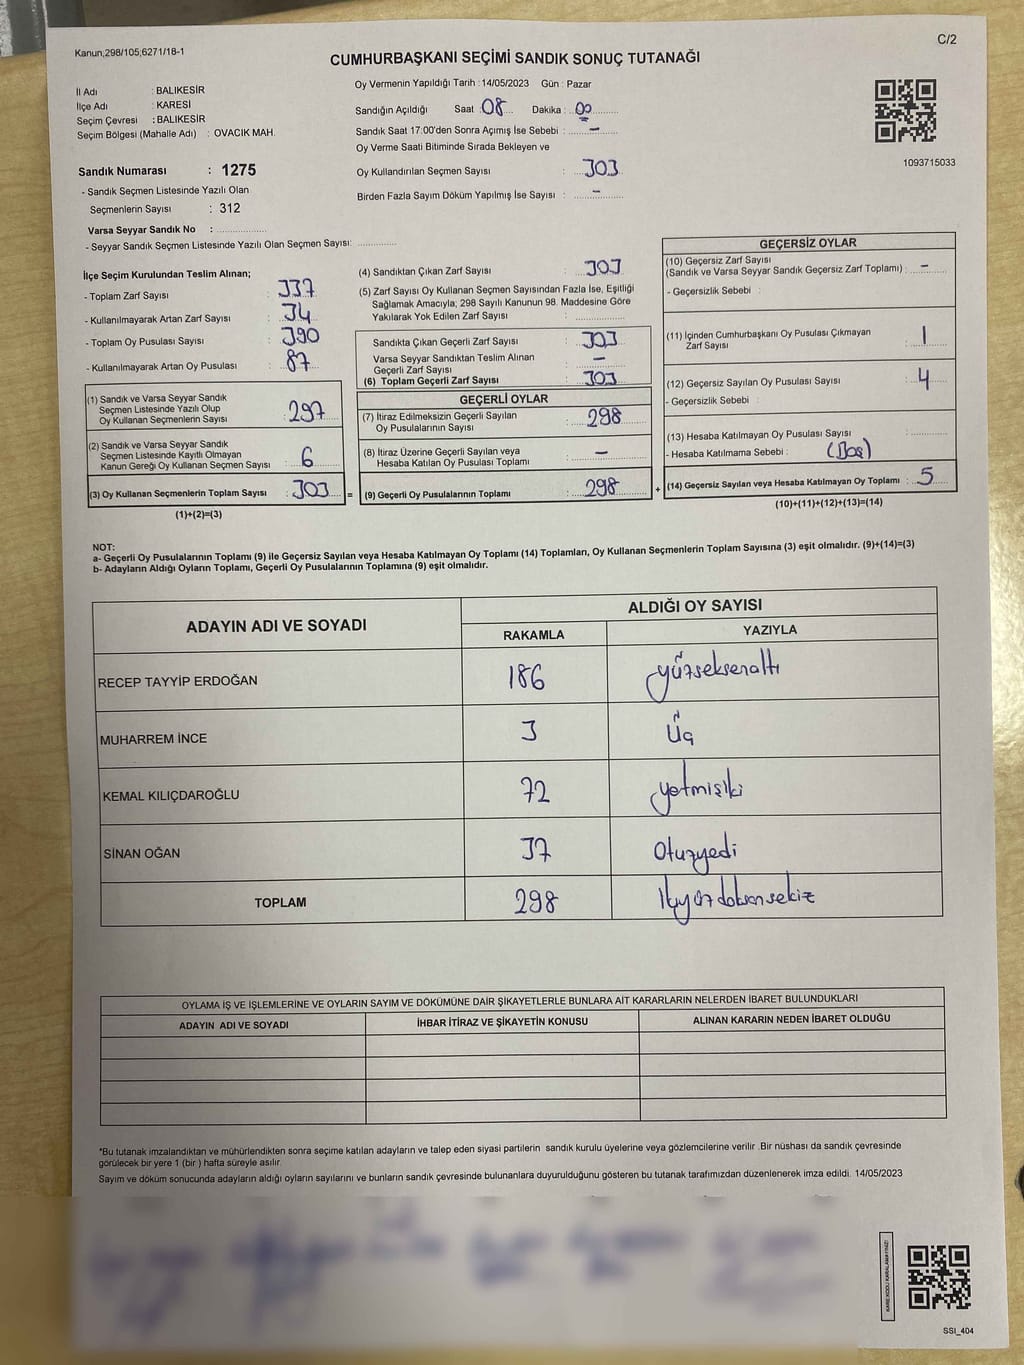 Kanun;298/105;6271/18-1
C/2
CUMHURBAŞKANI SEÇİMİ SANDIK SONUÇ TUTANAĞI
İl Adı : BALIKESİR
İlçe Adı : KARESİ
Seçim Çevresi : BALIKESİR
Seçim Bölgesi (Mahalle Adı) : OVACIK MAH.
Oy Vermenin Yapıldığı Tarih : 14/05/2023 Gün : Pazar
Sandığın Açıldığı Saat : 08 Dakika : 00
Sandık Saat 17:00'den Sonra Açımış İse Sebebi : -
Oy Verme Saati Bitiminde Sırada Bekleyen ve
Oy Kullandırılan Seçmen Sayısı : 303
Birden Fazla Sayım Döküm Yapılmış İse Sayısı : -
1093715033
Sandık Numarası : 1275
- Sandık Seçmen Listesinde Yazılı Olan
Seçmenlerin Sayısı : 312
Varsa Seyyar Sandık No :
- Seyyar Sandık Seçmen Listesinde Yazılı Olan Seçmen Sayısı:
İlçe Seçim Kurulundan Teslim Alınan;
- Toplam Zarf Sayısı : 337
- Kullanılmayarak Artan Zarf Sayısı : 34
- Toplam Oy Pusulası Sayısı : 390
- Kullanılmayarak Artan Oy Pusulası : 87
(1) Sandık ve Varsa Seyyar Sandık
Seçmen Listesinde Yazılı Olup
Oy Kullanan Seçmenlerin Sayısı : 297
(2) Sandık ve Varsa Seyyar Sandık
Seçmen Listesinde Kayıtlı Olmayan
Kanun Gereği Oy Kullanan Seçmen Sayısı : 6
(3) Oy Kullanan Seçmenlerin Toplam Sayısı : 303 =
(1)+(2)=(3)
(4) Sandıktan Çıkan Zarf Sayısı : 303
(5) Zarf Sayısı Oy Kullanan Seçmen Sayısından Fazla İse, Eşitliği
Sağlamak Amacıyla; 298 Sayılı Kanunun 98. Maddesine Göre
Yakılarak Yok Edilen Zarf Sayısı :
Sandıkta Çıkan Geçerli Zarf Sayısı : 303
Varsa Seyyar Sandıktan Teslim Alınan
Geçerli Zarf Sayısı : -
(6) Toplam Geçerli Zarf Sayısı : 303
GEÇERLİ OYLAR
(7) İtiraz Edilmeksizin Geçerli Sayılan
Oy Pusulalarının Sayısı : 298
(8) İtiraz Üzerine Geçerli Sayılan veya
Hesaba Katılan Oy Pusulası Toplamı : -
(9) Geçerli Oy Pusulalarının Toplamı : 298 +
GEÇERSİZ OYLAR
(10) Geçersiz Zarf Sayısı
(Sandık ve Varsa Seyyar Sandık Geçersiz Zarf Toplamı) : -
- Geçersizlik Sebebi :
(11) İçinden Cumhurbaşkanı Oy Pusulası Çıkmayan
Zarf Sayısı : 1
(12) Geçersiz Sayılan Oy Pusulası Sayısı : 4
- Geçersizlik Sebebi :
(13) Hesaba Katılmayan Oy Pusulası Sayısı :
- Hesaba Katılmama Sebebi : (Boş)
(14) Geçersiz Sayılan veya Hesaba Katılmayan Oy Toplamı : 5
(10)+(11)+(12)+(13)=(14)
NOT:
a- Geçerli Oy Pusulalarının Toplamı (9) ile Geçersiz Sayılan veya Hesaba Katılmayan Oy Toplamı (14) Toplamları, Oy Kullanan Seçmenlerin Toplam Sayısına (3) eşit olmalıdır. (9)+(14)=(3)
b- Adayların Aldığı Oyların Toplamı, Geçerli Oy Pusulalarının Toplamına (9) eşit olmalıdır.
ADAYIN ADI VE SOYADI
ALDIĞI OY SAYISI
RAKAMLA YAZIYLA
RECEP TAYYİP ERDOĞAN 186 yüzseksenaltı
MUHARREM İNCE 3 Üç
KEMAL KILIÇDAROĞLU 72 yetmişiki
SİNAN OĞAN 37 Otuzyedi
TOPLAM 298 İkiyüzdoksansekiz
OYLAMA İŞ VE İŞLEMLERİNE VE OYLARIN SAYIM VE DÖKÜMÜNE DAİR ŞİKAYETLERLE BUNLARA AİT KARARLARIN NELERDEN İBARET BULUNDUKLARI
ADAYIN ADI VE SOYADI İHBAR İTİRAZ VE ŞİKAYETİN KONUSU ALINAN KARARIN NEDEN İBARET OLDUĞU
*Bu tutanak imzalandıktan ve mühürlendikten sonra seçime katılan adayların ve talep eden siyasi partilerin sandık kurulu üyelerine veya gözlemcilerine verilir .Bir nüshası da sandık çevresinde
görülecek bir yere 1 (bir ) hafta süreyle asılır.
Sayım ve döküm sonucunda adayların aldığı oyların sayılarını ve bunların sandık çevresinde bulunanlara duyurulduğunu gösteren bu tutanak tarafımızdan düzenlenerek imza edildi. 14/05/2023
KARE KODU KARALAMAYINIZ!
SSI_404